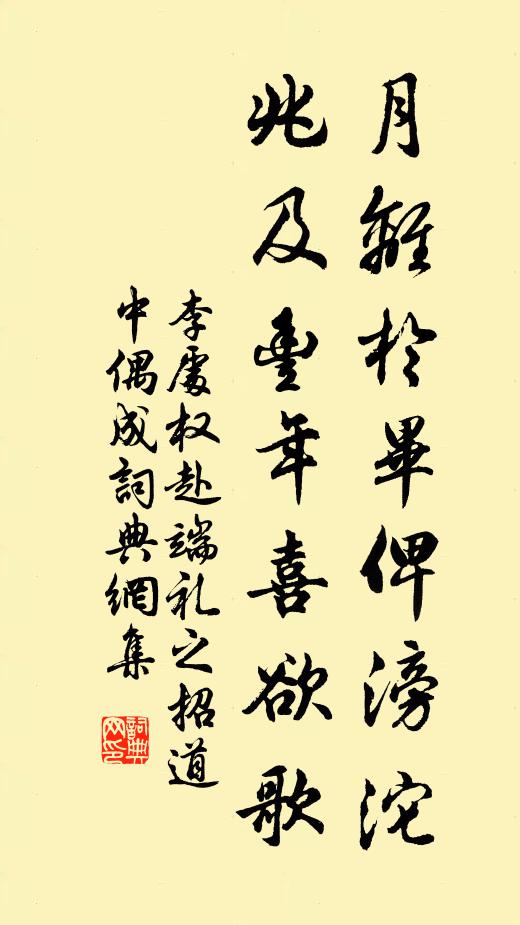 月離於畢俾滂沱
兆及豐年喜欲歌
李處权赴端礼之招道
中偶成詞典網集
詞典网印